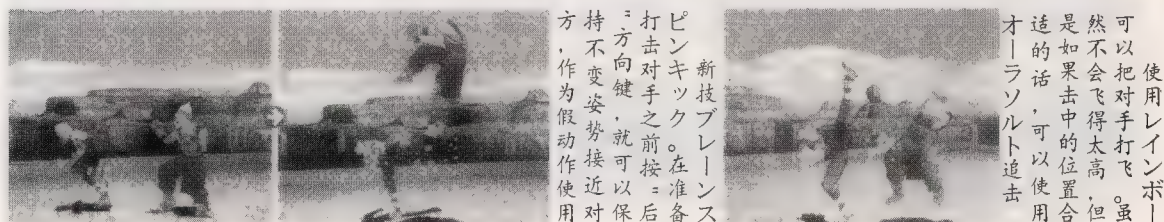 使用レインボー
可以把对手打飞。虽
然不会飞得太高，但
是如果击中的位置合
适的话，可以使用
オーラソルト追击
新技ブレーンス
ピンキック。在准备
打击对手之前按=后
=方向键，就可以保
持不变姿势接近对
方，作为假动作使用